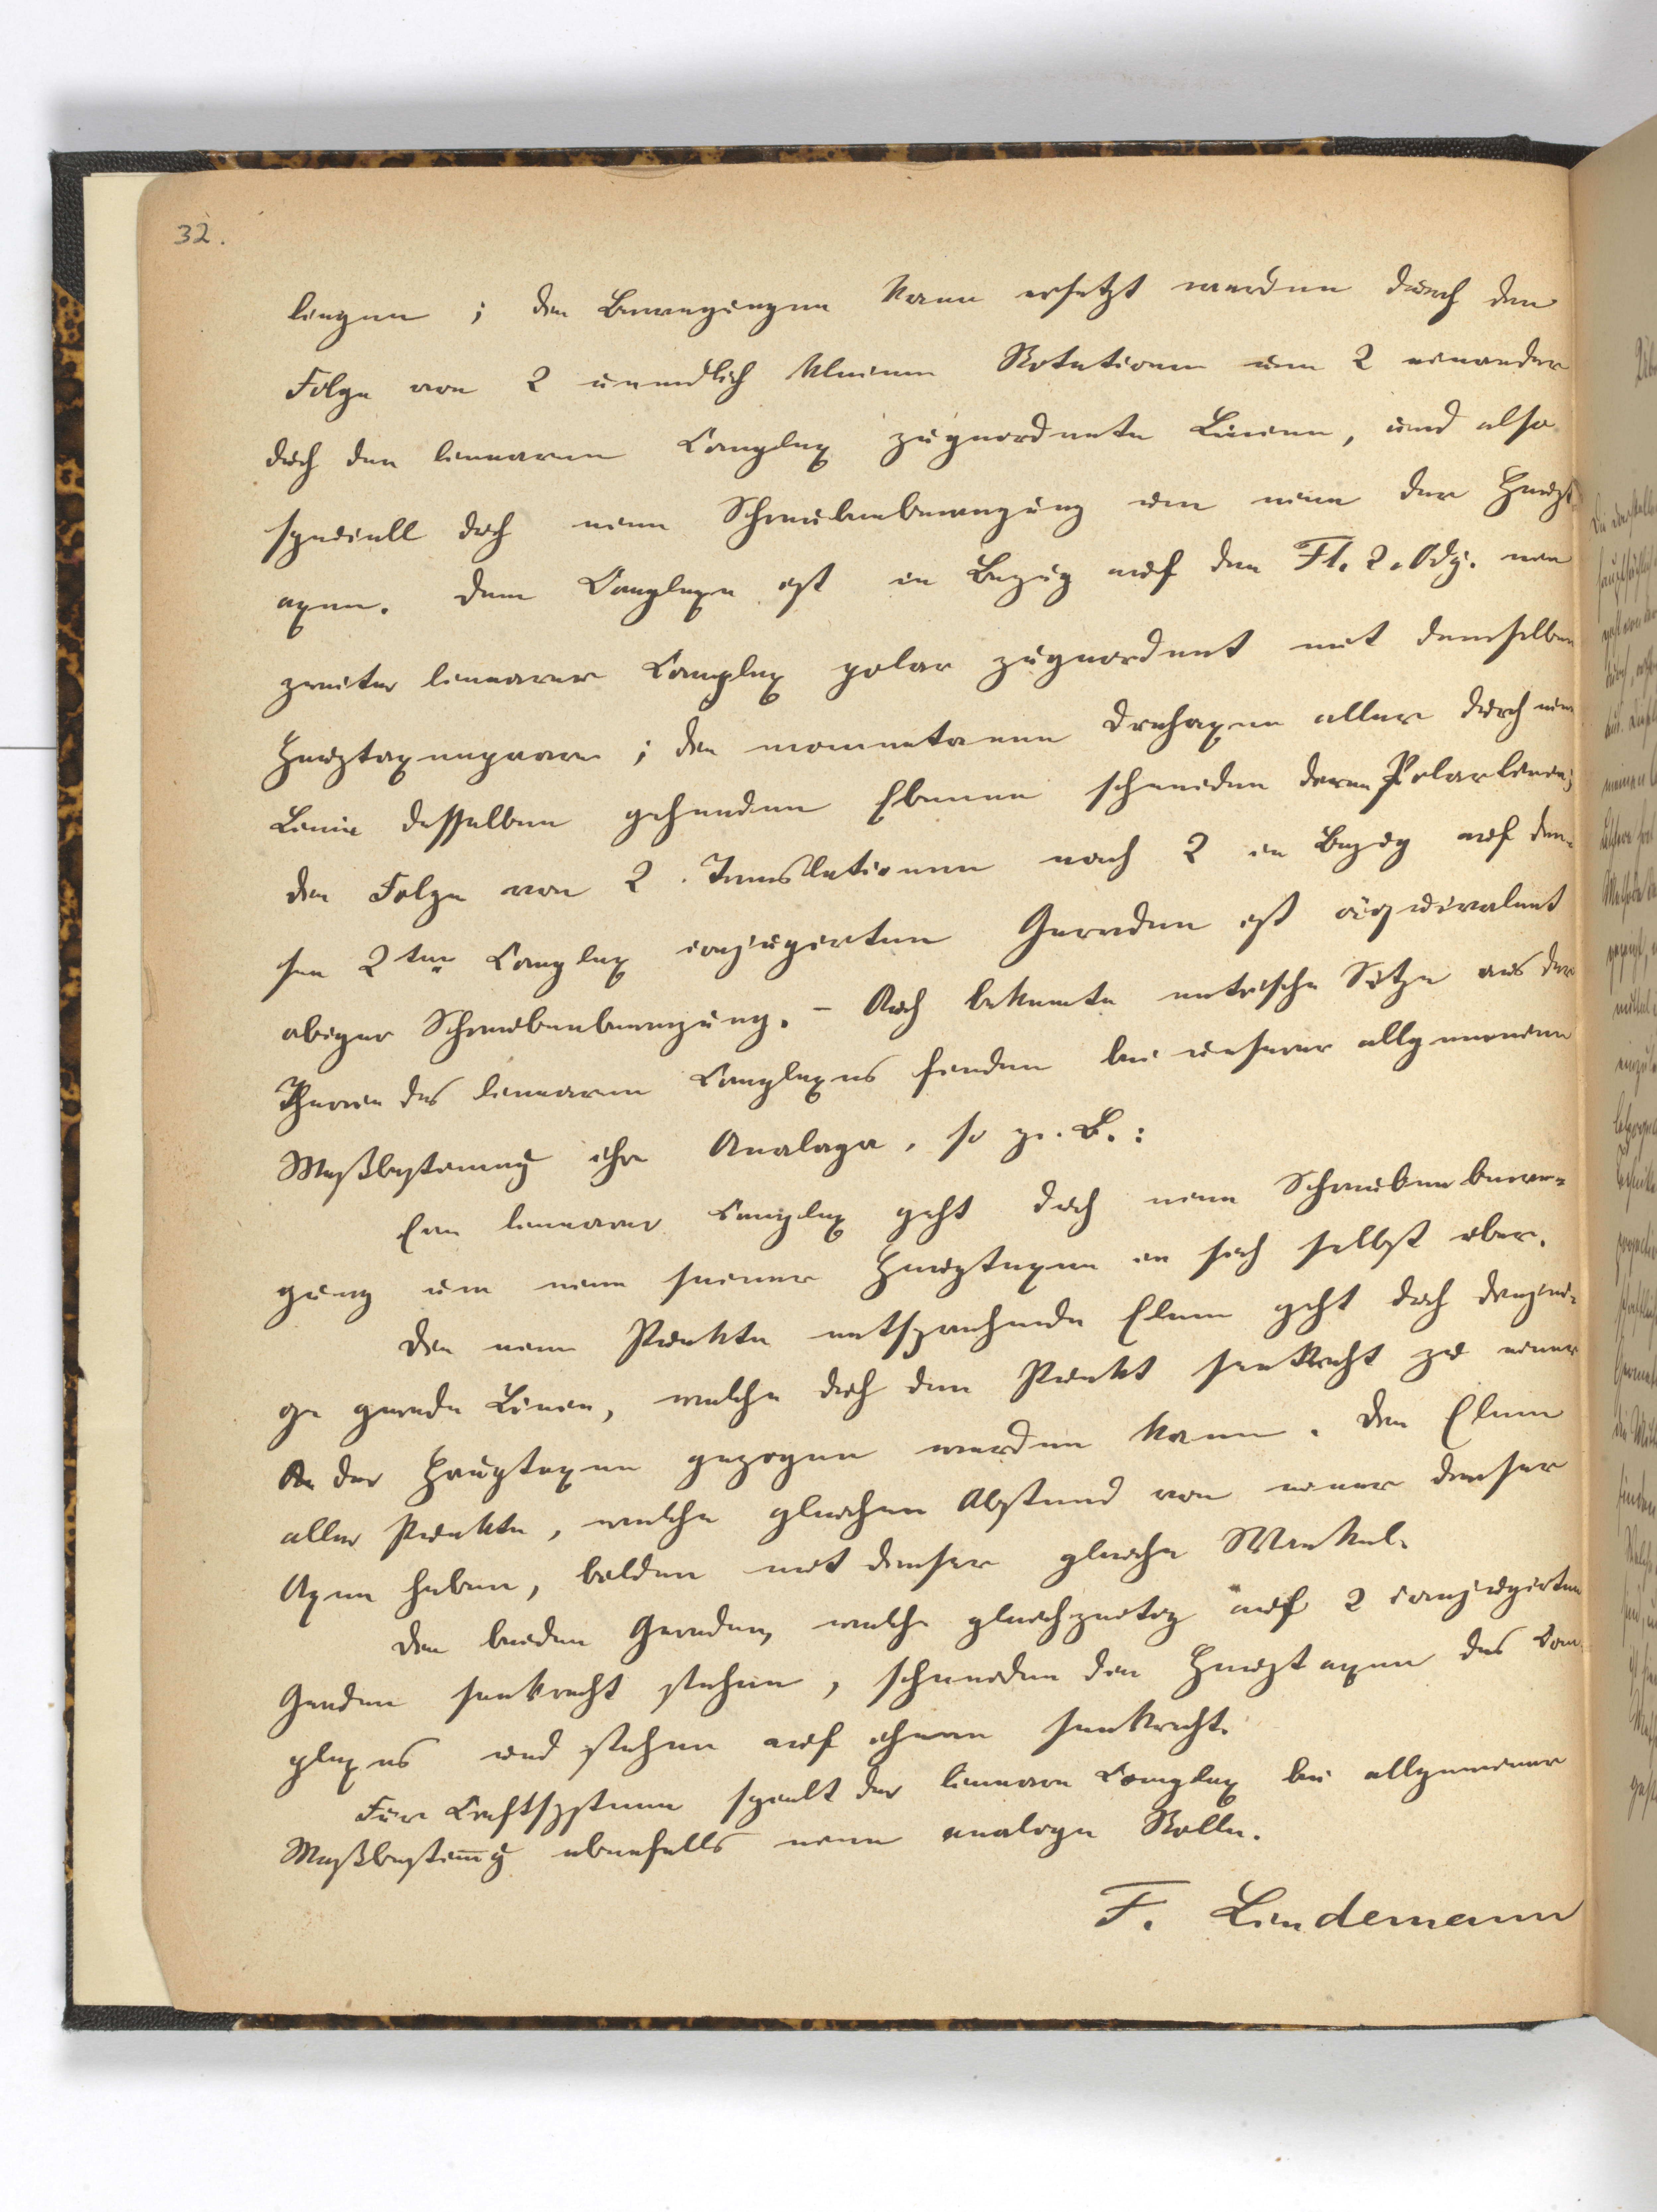 32.
liegen; die Bewegungen kann ersetzt werden durch die
Folge von 2 unendlich kleinen Rotationen um 2 einander
dch den linearen Complex zugeordnete Linien, und also
speciell dch eine Schraubenbewegung um eine der Haupt-
axen. Dem Complexe ist in Bezug auf die Fl. 2. Odg. ein
zweiter linearer Complex polar zugeordnet mit demselben
Hauptaxenpaare; die momentanen Drehaxen aller durch eine
Linie desselben gehenden Ebenen schneiden deren Polarlinie;
die Folge von 2 Translationen nach 2 in Bezug auf die-
sen 2ten Complex conjugirten Geraden ist äquivalent
obiger Schraubenbewegung. - Auch bekannte metrische Sätze aus der
Theorie des linearen Complexes finden bei unserer allgemeinen
Maßbestimmg ihre Analoga, so z. B.:
Ein linearer Complex geht dch eine Schraubenbewe-
gung um eine seiner Hauptaxen in sich selbst über.
Die einem Punkte entsprechende Ebene geht dch diejeni-
ge gerade Linie, welche dch den Punkt senkrecht zu einer
der Hauptaxen gezogen werden kann. Die Ebenen
aller Punkte, welche gleichen Abstand von einer dieser
Axen haben, bilden mit dieser gleiche Winkel.
Die beiden Geraden, welche gleichzeitig auf 2 conjugirten
Geraden senkrecht stehen, schneiden die Hauptaxen des Com-
plexes und stehen auf ihnen senkrecht.
Für Kraftsysteme spielt der lineare Complex bei allgemeiner
Maßbestimg ebenfalls eine analoge Rolle.
F. Lindemann